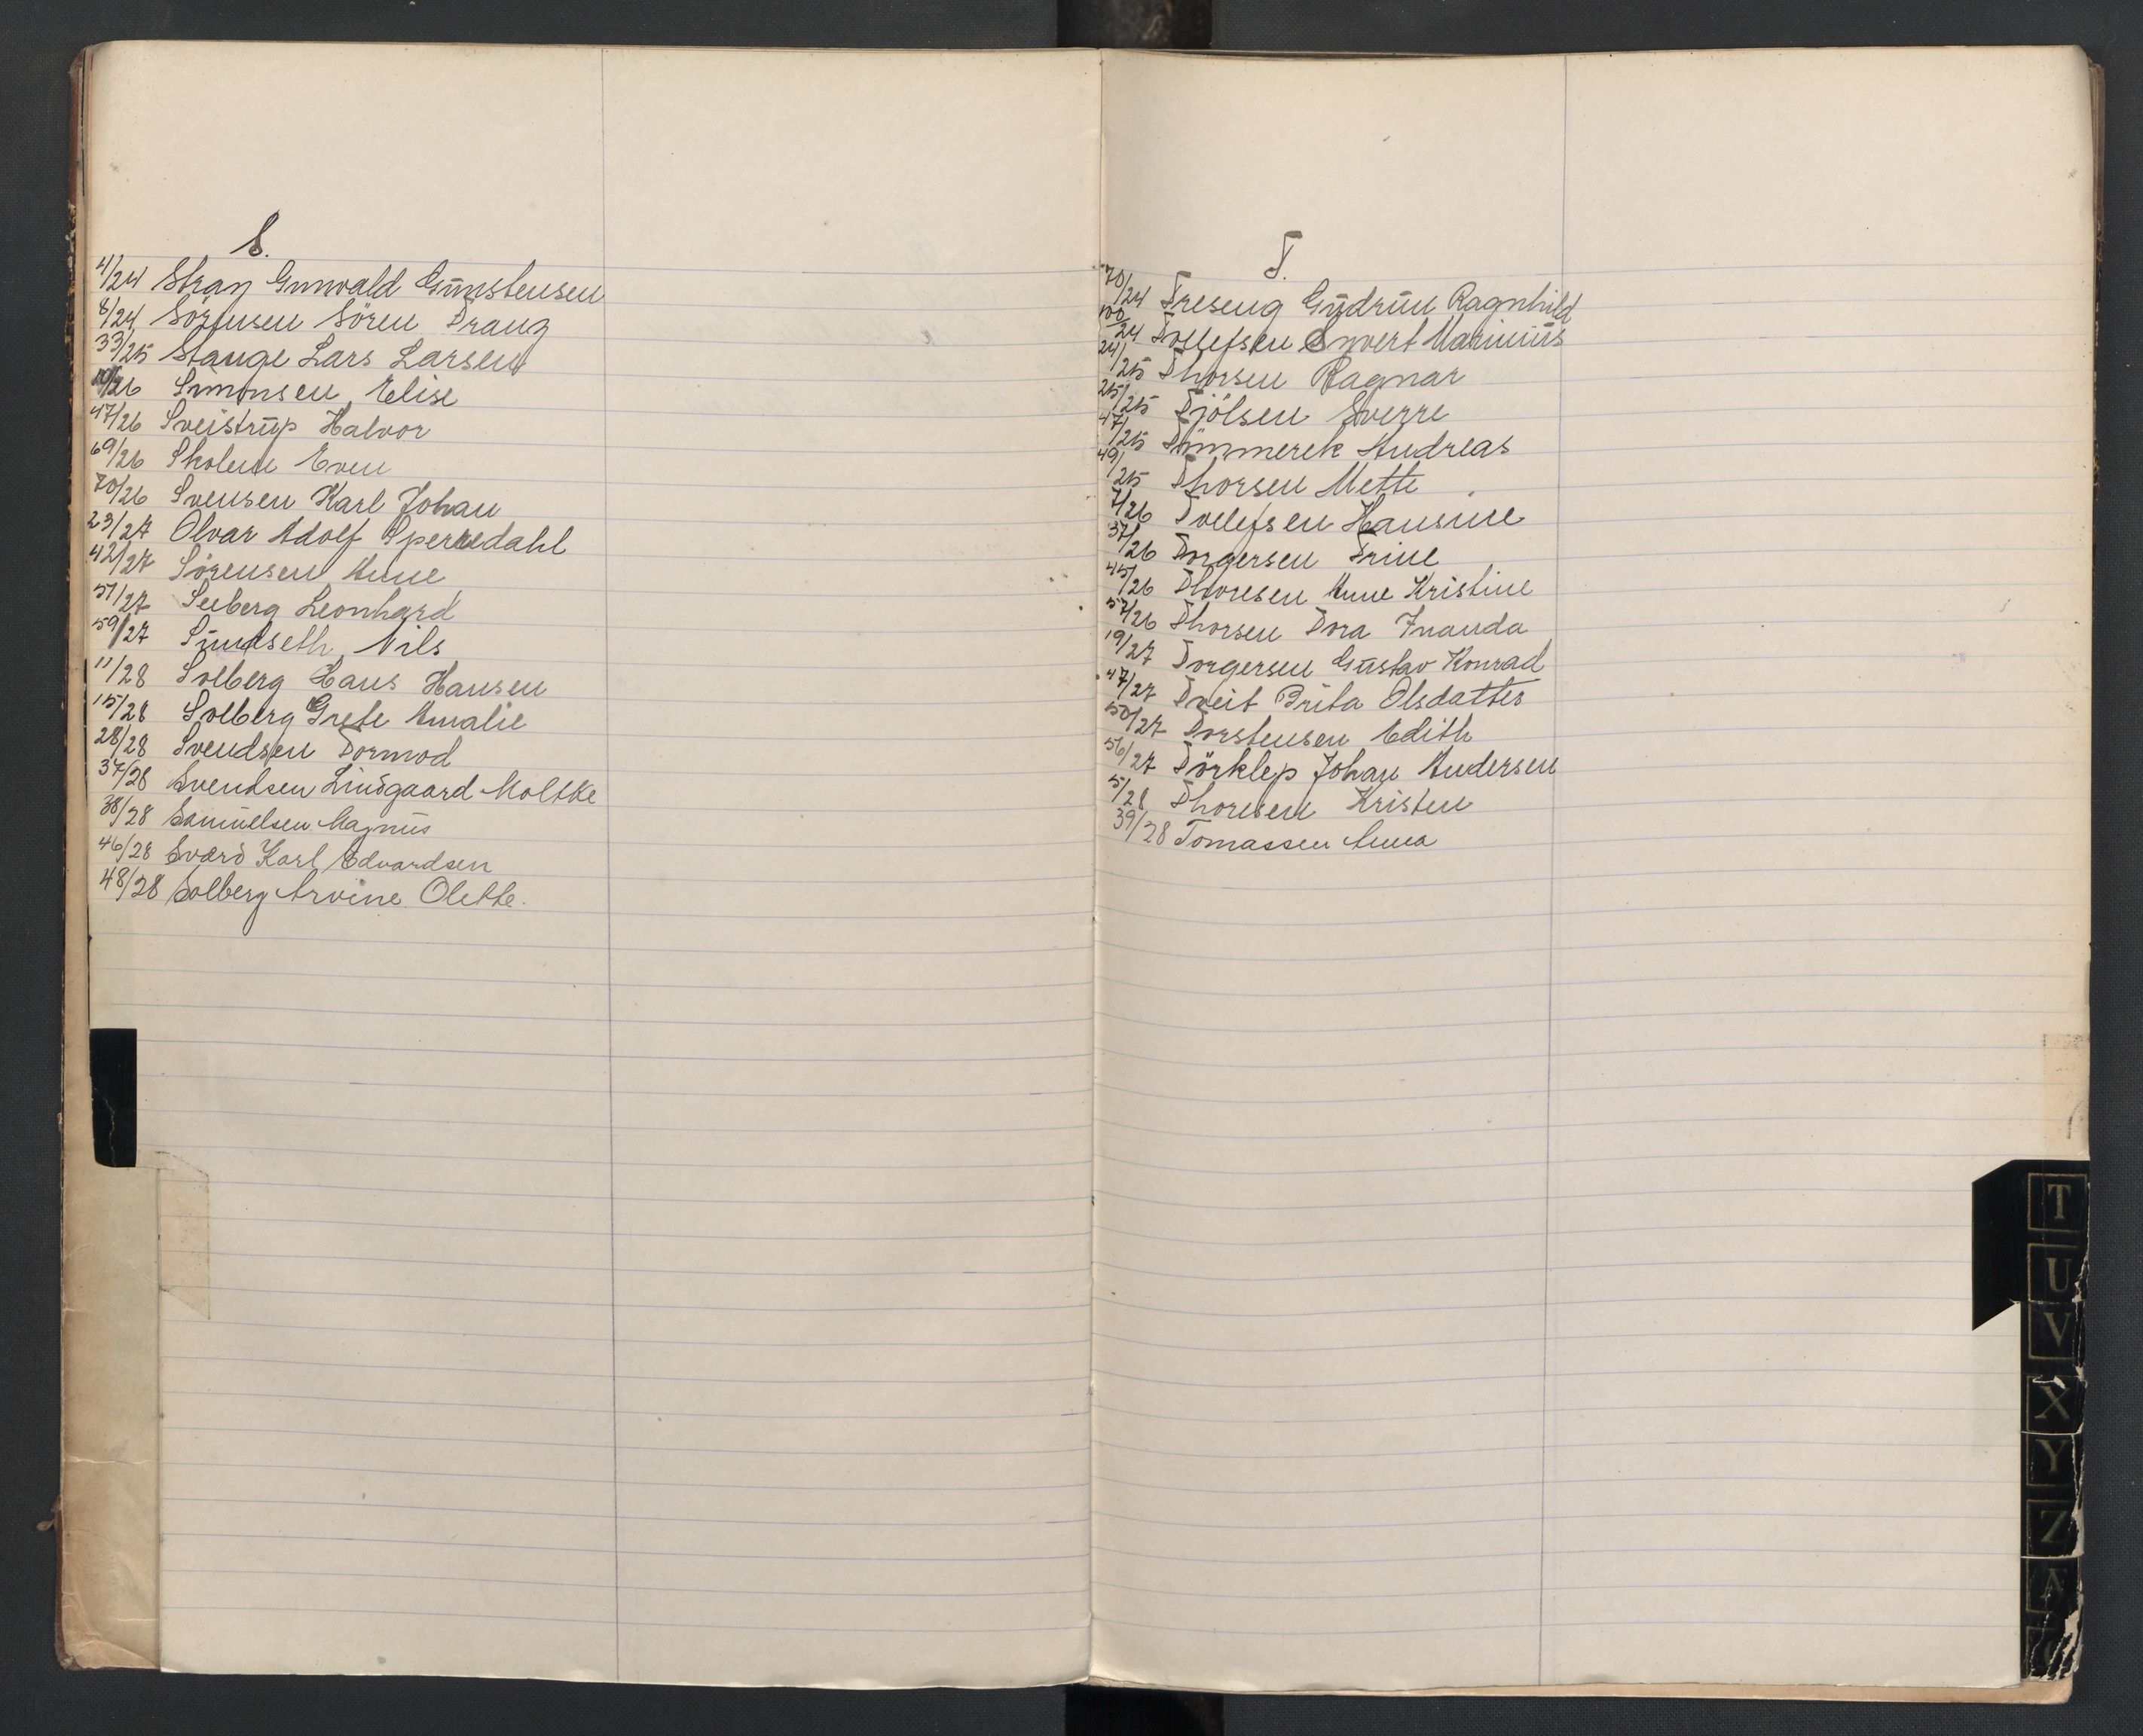 S.
4/24 Stray Gunvald Gunstensen
8/24 Sörensen Sören Prang
33/25 Stange Lars Larsen
/26 Simonsen Elise
47/26 Sveistrup Halvor
69/26 Skolene Even
70/26 Svensen Karl Johan
23/27 Olvar Adolf Sperredahl
42/27 Sörensen Anne
51/27 Seeberg Leonhard
59/27 Sundseth Nils
11/28 Solberg Hans Hansen
15/28 Solberg Grete Amalie
28/28 Svendsen Tormod
37/28 Svendsen Lindgaard Moltke
38/28 Samuelsen Magnus
46/28 Sværd Karl Edvardsen
48/28 Solberg Arvine Olette.
T.
70/24 Treseng Gudrun Ragnhild
100/24 Tollefsen Syvert Marinius
24/25 Thorsen Ragnar
25/25 Tjölsen Sverre
47/25 Tömmerek Andreas
49/25 Thorsen Mette
7/26 Tollefsen Hansine
37/26 Torgersen Trine
45/26 Thoresen Anne Kristine
57/26 Thorsen Tora Inanda
19/27 Torgersen Gustav Konrad
47/27 Tveit Brita Olsdatter
50/27 Torstensen Edith
56/27 Törklep Johan Andersen
5/28 Thoresen Kristen
39/28 Tomassen Anna
T
U
V
X
Y
Z